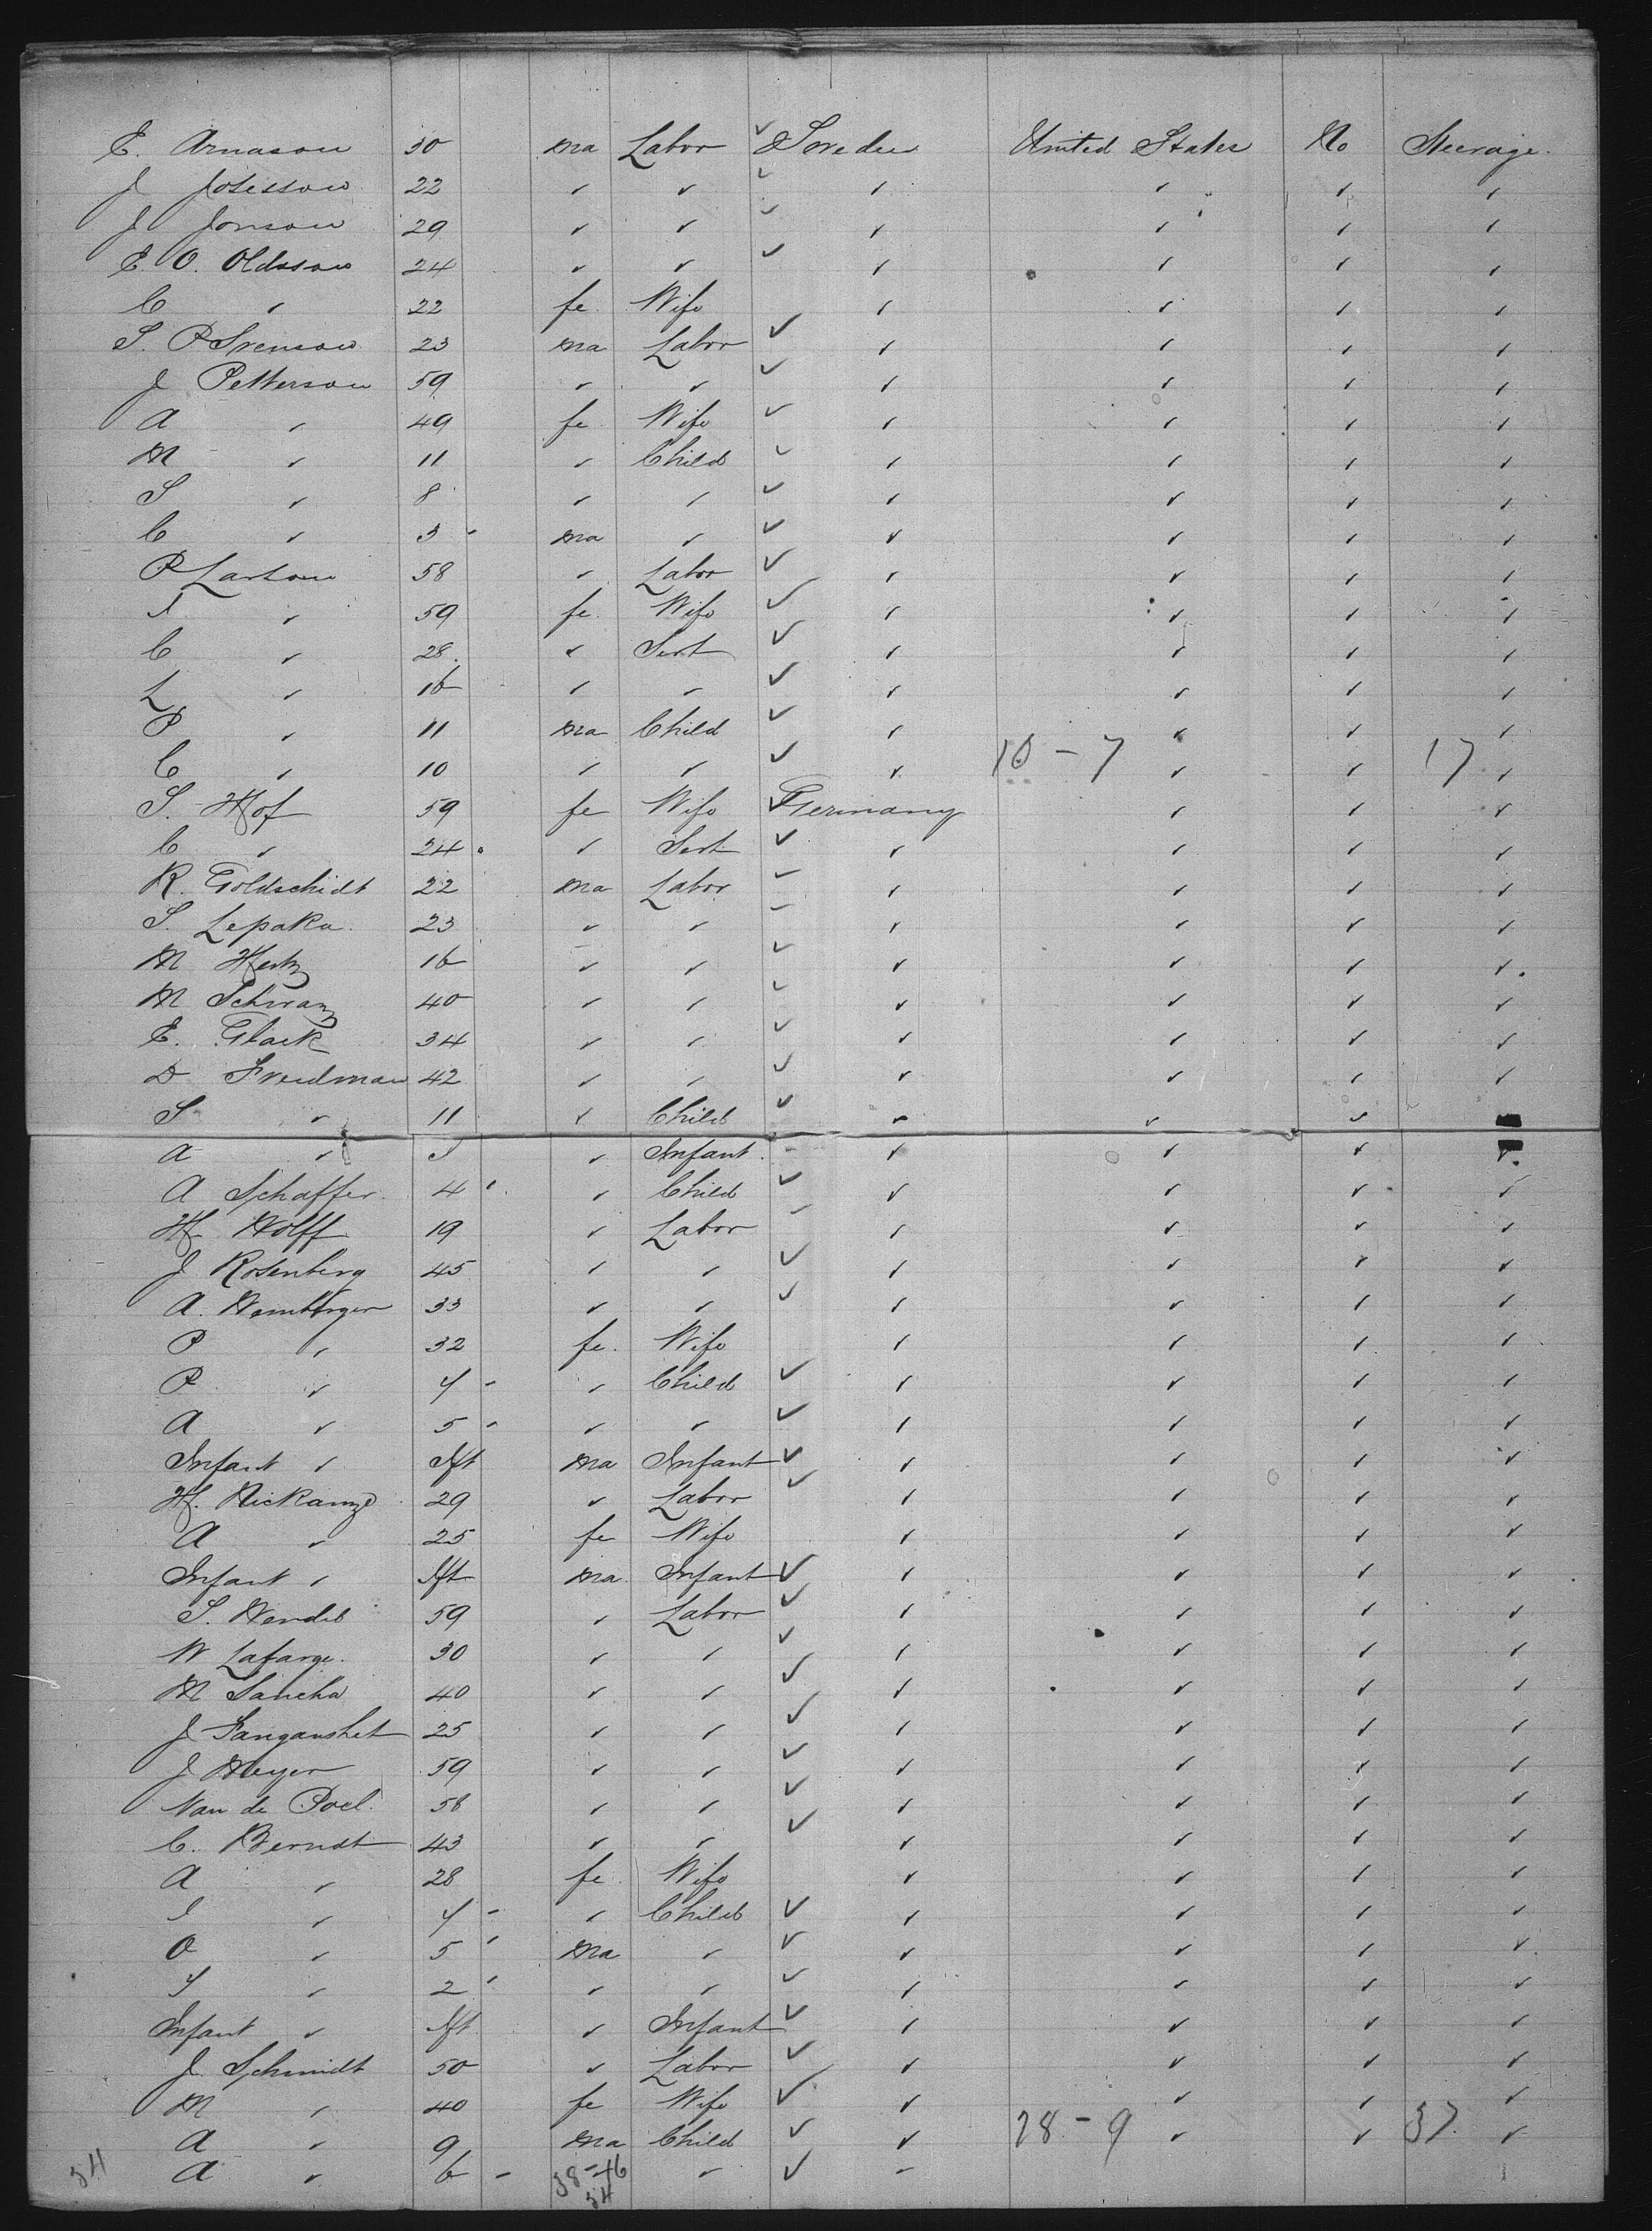 E. Arnason 30 ma Labor ✓ Sweden United States No Steerage.
J Josisson 22 ✓ ✓ ✓ ✓ ✓ ✓ ✓
J Jonson 29 ✓ ✓ ✓ ✓ ✓ ✓ ✓
E. O. Oldsson 24 ✓ ✓ ✓ ✓ ✓ ✓ ✓
C ✓ 22 fe Wife ✓ ✓ ✓ ✓
S. P Svenson 23 ma Labor ✓ ✓ ✓ ✓ ✓
J Petterson 59 ✓ ✓ ✓ ✓ ✓ ✓ ✓
A ✓ 49 fe Wife ✓ ✓ ✓ ✓ ✓
M ✓ 11 ✓ Child ✓ ✓ ✓ ✓ ✓
S ✓ 8 ✓ ✓ ✓ ✓ ✓ ✓ ✓
C ✓ 3 - ma ✓ ✓ ✓ ✓ ✓ ✓
P Larson 58 ✓ Labor ✓ ✓ ✓ ✓ ✓
✓ 59 fe. Wife ✓ ✓ ✓ ✓ ✓
C ✓ 28 ✓ Sert ✓ ✓ ✓ ✓ ✓
L ✓ 16 ✓ ✓ ✓ ✓ ✓ ✓ ✓
P ✓ 11 ma Child ✓ ✓ ✓ ✓ ✓
C ✓ 10 ✓ ✓ ✓ ✓ 10 - 7 ✓ ✓ 17 ✓
S. Hof 59 fe Wife ✓ Germany ✓ ✓ ✓
C ✓ 24 ✓ Sert ✓ ✓ ✓ ✓ ✓
R. Goldschidt 22 ma Labor ✓ ✓ ✓ ✓ ✓
S. Lepaka 23 ✓ ✓ ✓ ✓ ✓ ✓ ✓
M Hertz 16 ✓ ✓ ✓ ✓ ✓ ✓ ✓
M Schwanz 40 ✓ ✓ ✓ ✓ ✓ ✓ ✓
E. Glack 34 ✓ ✓ ✓ ✓ ✓ ✓ ✓
D Freudman 42 ✓ ✓ ✓ ✓ ✓ ✓ ✓
S ✓ 11 ✓ Child ✓ ✓ ✓ ✓
A ✓ ✓ Infant - ✓ ✓ ✓ ✓
A Schaffer 4 ✓ Child ✓ ✓ ✓ ✓ ✓
H Wolff 19 ✓ Labor ✓ ✓ ✓ ✓ ✓
J Rosenberg 45 ✓ ✓ ✓ ✓ ✓ ✓ ✓
A. Wemberger 33 ✓ ✓ ✓ ✓ ✓ ✓ ✓
P ✓ 32 fe. Wife ✓ ✓ ✓ ✓
P ✓ 7 - ✓ Child ✓ ✓ ✓ ✓ ✓
A ✓ 5 - ✓ ✓ ✓ ✓ ✓ ✓ ✓
Infant ✓ Ift ma Infant ✓ ✓ ✓ ✓ ✓
H. 29 ✓ Labor ✓ ✓ ✓ ✓ ✓
A ✓ 25 fe Wife ✓ ✓ ✓ ✓
Infant ✓ Ift ma Infant ✓ ✓ ✓ ✓ ✓
S. 59 ✓ Labor ✓ ✓ ✓ ✓ ✓
W Lafarge. 30 ✓ ✓ ✓ ✓ ✓ ✓ ✓
M Sancha 40 ✓ ✓ ✓ ✓ ✓ ✓ ✓
J 25 ✓ ✓ ✓ ✓ ✓ ✓ ✓
J Meyer 59 ✓ ✓ ✓ ✓ ✓ ✓ ✓
Van de Poel. 58 ✓ ✓ ✓ ✓ ✓ ✓ ✓
C. Berndt 43 ✓ ✓ ✓ ✓ ✓ ✓ ✓
A ✓ 28 fe Wife ✓ ✓ ✓ ✓
I ✓ 7 - ✓ Child ✓ ✓ ✓ ✓ ✓
O ✓ 5 ma ✓ ✓ ✓ ✓ ✓ ✓
✓ 2 ✓ ✓ ✓ ✓ ✓ ✓ ✓
Infant ✓ Ift ✓ Infant ✓ ✓ ✓ ✓ ✓
J. Schmidt 50 ✓ Labor ✓ ✓ ✓ ✓ ✓
M ✓ 40 fe Wife ✓ ✓ ✓ ✓ ✓
A ✓ 9 ma Child ✓ ✓ 28 - 9 ✓ ✓ 37 ✓
A ✓ 6 - 38-16 ✓ ✓ -
54 54